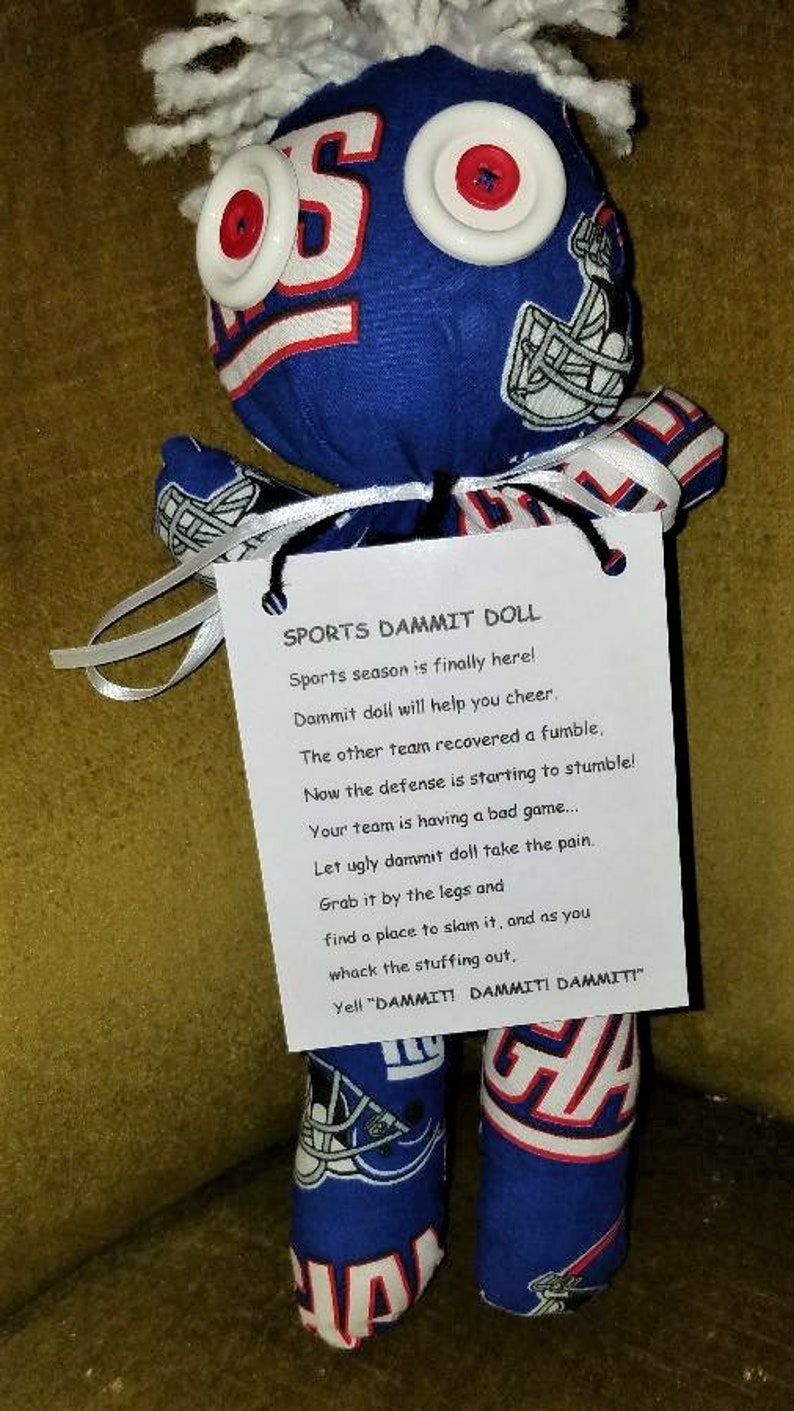 NTS
SPORTS DAMMIT DOLL
Sports season is finally here!
Dammit doll will help you cheer.
The other team recovered a fumble,
Now the defense is starting to stumble!
Your team is having a bad game...
Let ugly dammit doll take the pain.
Grab it by the legs and
find a place to slam it, and as you
whack the stuffing out,
Yell "DAMMIT! DAMMIT! DAMMIT!"
ny
GIA
GIAN